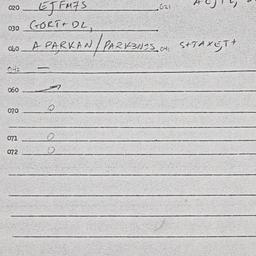 020 EJFM7S 021
030 GORT+ DL,
040 A PARKAN/PARK3NSS 041 S+TAXEJT+
042 —
060
070 0
071 0
072 0